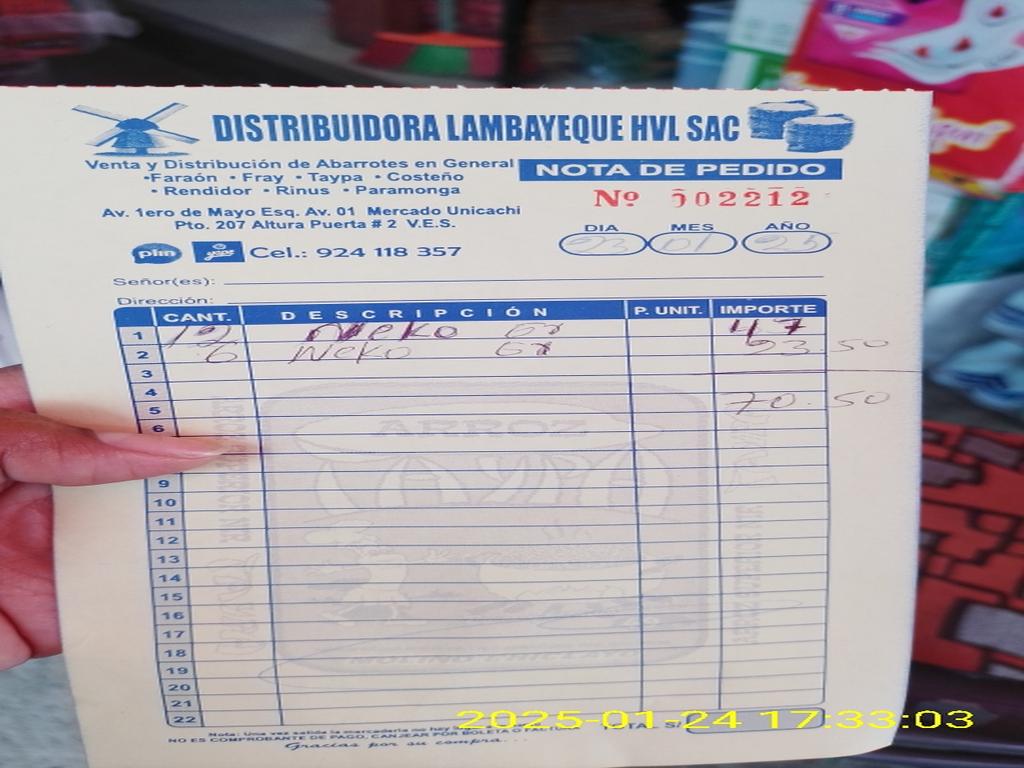 DISTRIBUIDORA LAMBAYEQUE HVL SAC
Venta y Distribución de Abarrotes en General
•Faraón •Fray •Taypa •Costeño
•Rendidor •Rinus •Paramonga
NOTA DE PEDIDO
Nº 502212
Av. 1ero de Mayo Esq. Av. 01 Mercado Unicachi
Pto. 207 Altura Puerta # 2 V.E.S.
DIA MES AÑO
23 01 25
plin yape Cel.: 924 118 357
Señor(es):
Dirección:
CANT. DESCRIPCIÓN P. UNIT. IMPORTE
1 12 Neko 47
2 6 Neko 23.50
3
4
5 70.50
6
9
10
11
12
13
14
15
16
17
18
19
20
21
22
ARROZ
TAYPA
Nota: Una vez salida la mercadería no hay
NO ES COMPROBANTE DE PAGO, CANJEAR POR BOLETA O FACTURA
Gracias por su compra...
TOTAL S/
2025-01-24 17:33:03